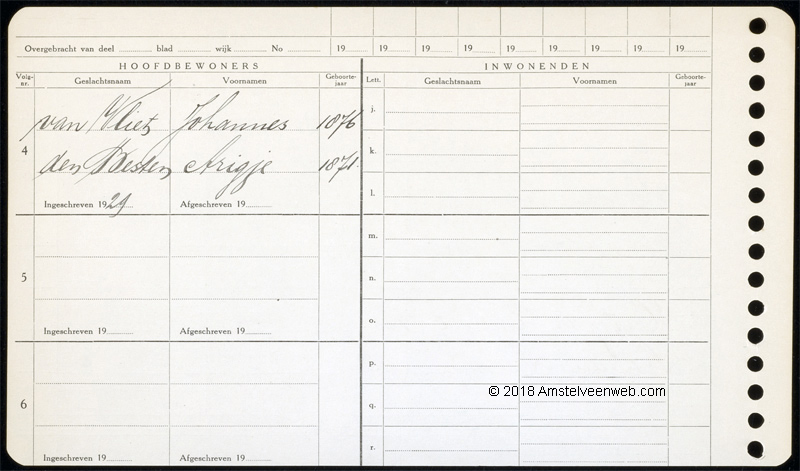 Overgebracht van deel blad wijk No 19 19 19 19 19 19 19 19 19
HOOFDBEWONERS INWONENDEN
Volg-nr. Geslachtsnaam Voornamen Geboorte-jaar Lett. Geslachtsnaam Voornamen Geboorte-jaar
j.
van Vliet Johannes 1876
4 k.
den Besten Arigje 1871
l.
Ingeschreven 1929 Afgeschreven 19
m.
5 n.
o.
Ingeschreven 19 Afgeschreven 19
p.
© 2018 Amstelveenweb.com
6 q.
r.
Ingeschreven 19 Afgeschreven 19